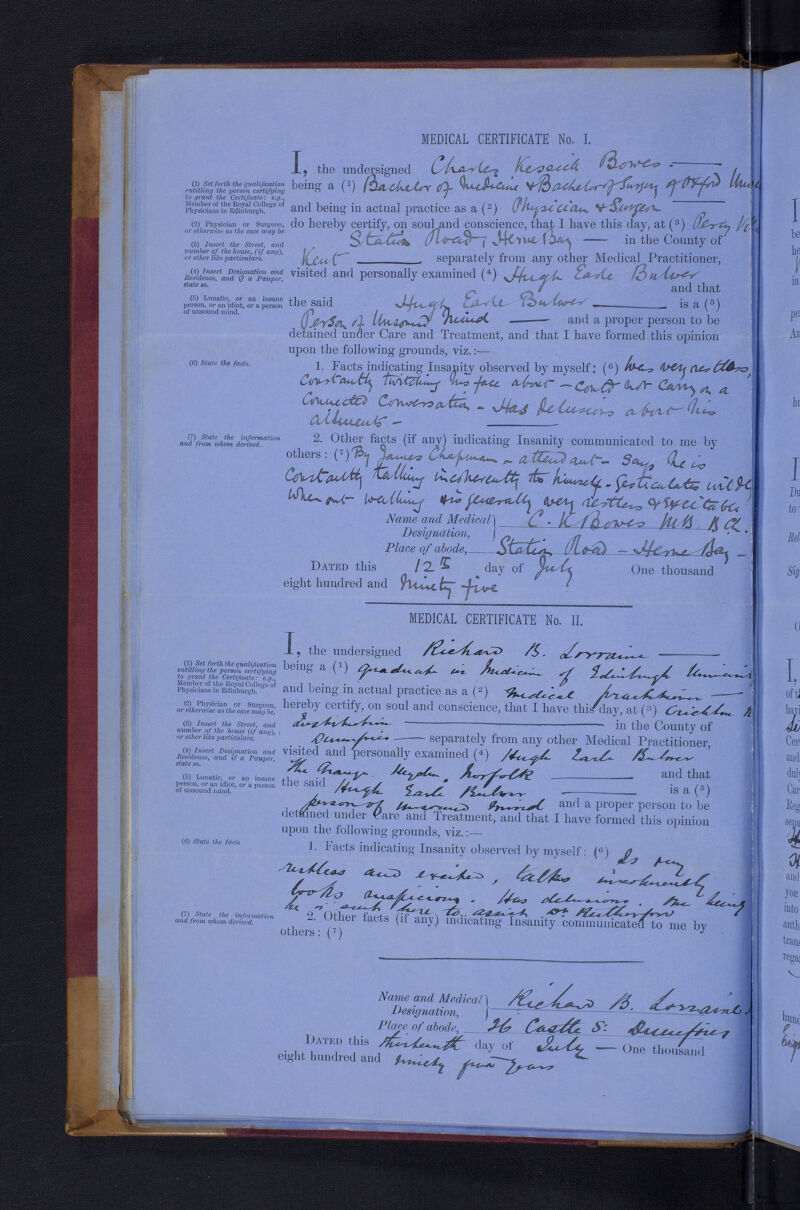 MEDICAL CERTIFICATE No. I.
I, the undersigned Charles Kessick Bowes
(1) Set forth the qualification
entitling the person certifying
to grant the Certificate: e.g.,
Member of the Royal College of
Physicians in Edinburgh.
being a (1) Bachelor of Medicine & Bachelor of Surgery of Oxford
and being in actual practice as a (2) Physician & Surgeon
(2) Physician or Surgeon,
or otherwise as the case may be
do hereby certify, on soul and conscience, that I have this day, at (3) Percy
(3) Insert the Street, and
number of the house, (if any),
or other like particulars.
Station Road, Herne Bay in the County of
Kent separately from any other Medical Practitioner,
(4) Insert Designation and
Residence, and if a Pauper,
state so.
visited and personally examined (4) Hugh Earle Bulwer
and that
(5) Lunatic, or an insane
person, or an idiot, or a person
of unsound mind.
the said Hugh Earle Bulwer is a (5)
Person of Unsound Mind and a proper person to be
detained under Care and Treatment, and that I have formed this opinion
upon the following grounds, viz.:—
(6) State the facts.
1. Facts indicating Insanity observed by myself: (6) Was very restless,
Constantly twitching his face about - Could not Carry on a
Connected Conversation - Has delusions about his
ailments -
(7) State the information
and from whom derived.
2. Other facts (if any) indicating Insanity communicated to me by
others: (7) By James Chapman - attendant - Says he is
Constantly talking incoherently to himself - Gesticulates wildly
When out walking is generally very restless & excitable
Name and Medical
Designation, C. K Bowes MB. B Ch.
Place of abode, Station Road - Herne Bay -
DATED this 12th day of July One thousand
eight hundred and Ninety five
MEDICAL CERTIFICATE No. II.
I, the undersigned Richard B. Lorraine
(1) Set forth the qualification
entitling the person certifying
to grant the Certificate: e.g.,
Member of the Royal College of
Physicians in Edinburgh.
being a (1) graduate in Medicine of Edinburgh
and being in actual practice as a (2) medical practitioner
(2) Physician or Surgeon,
or otherwise as the case may be.
hereby certify, on soul and conscience, that I have this day, at (3) Crichton
(3) Insert the Street, and
number of the house (if any),
or other like particulars.
Institution in the County of
Dumfries separately from any other Medical Practitioner,
(4) Insert Designation and
Residence, and if a Pauper,
state so.
visited and personally examined (4) Hugh Earle Bulwer
The Grange Heydon, Norfolk and that
(5) Lunatic, or an insane
person, or an idiot, or a person
of unsound mind.
the said Hugh Earle Bulwer is a (5)
person of unsound mind and a proper person to be
detained under Care and Treatment, and that I have formed this opinion
upon the following grounds, viz.:—
(6) State the facts
1. Facts indicating Insanity observed by myself: (6) Is very
restless and excited, talks incoherently
looks suspicious. Has delusions. One being
he is sent here to assist Dr Rutherford
(7) State the information
and from whom derived.
2. Other facts (if any) indicating Insanity communicated to me by
others: (7)
Name and Medical
Designation, Richard B. Lorraine
Place of abode, 26 Castle St Dumfries
DATED this thirteenth day of July One thousand
eight hundred and ninety five years